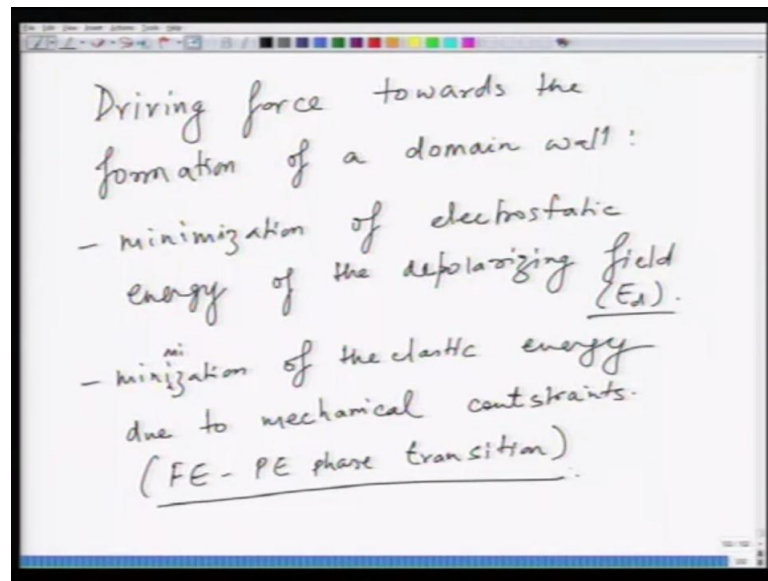 Driving force towards the
formation of a domain wall:
- minimization of electrostatic
energy of the depolarizing field
(Ed).
- minimization of the elastic energy
due to mechanical contstraints.
(FE - PE phase transition)